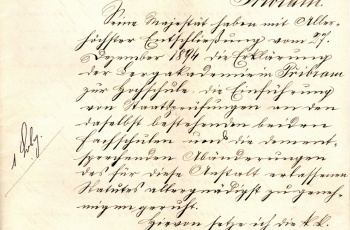 Pribram.
Seine Majestät haben mit Aller-
höchster Entschließung vom 27.
Dezember 1894 die Erklärung
der Bergakademie in Pribram
zur Hochschule, die Einführung
von Staatsprüfungen an den
daselbst bestehenden beiden
Fachschulen und die dement-
sprechenden Abänderungen
des für diese Anstalt erlassenen
Statutes allergnädigst zu geneh-
migen geruht.
Hievon setze ich die k.k.